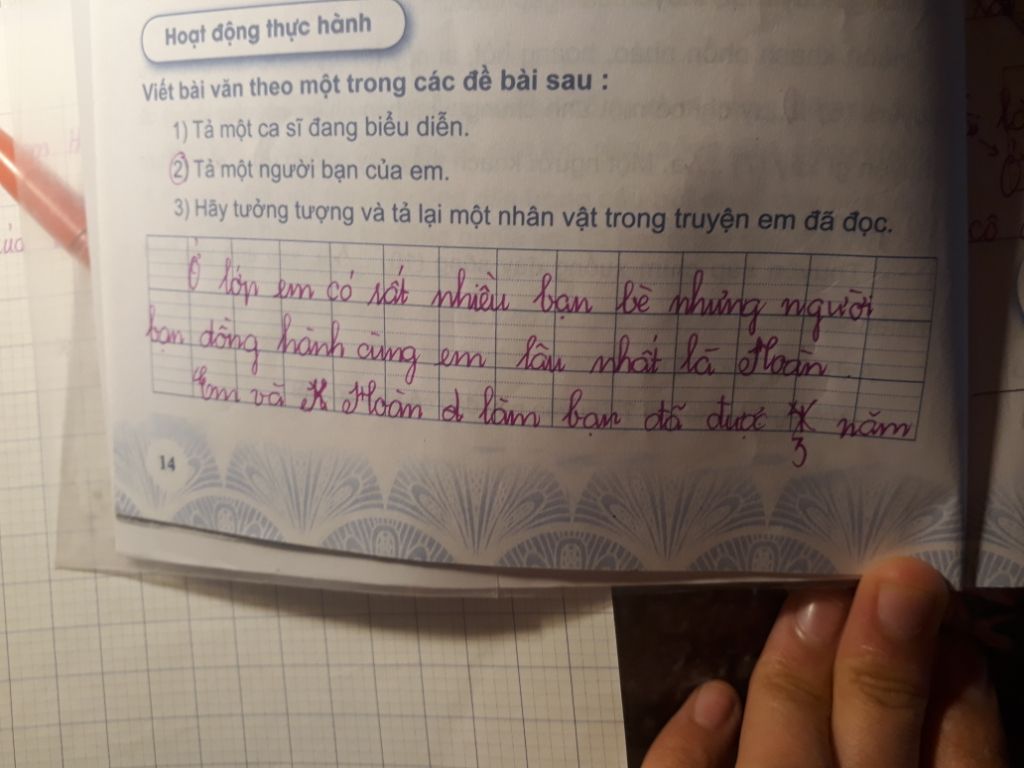 Hoạt động thực hành
Viết bài văn theo một trong các đề bài sau :
1) Tả một ca sĩ đang biểu diễn.
2) Tả một người bạn của em.
3) Hãy tưởng tượng và tả lại một nhân vật trong truyện em đã đọc.
Ở lớp em có rất nhiều bạn bè nhưng người
bạn đồng hành cùng em lâu nhất là Hoàn.
Em và Hoàn d làm bạn đã được 3 năm
14